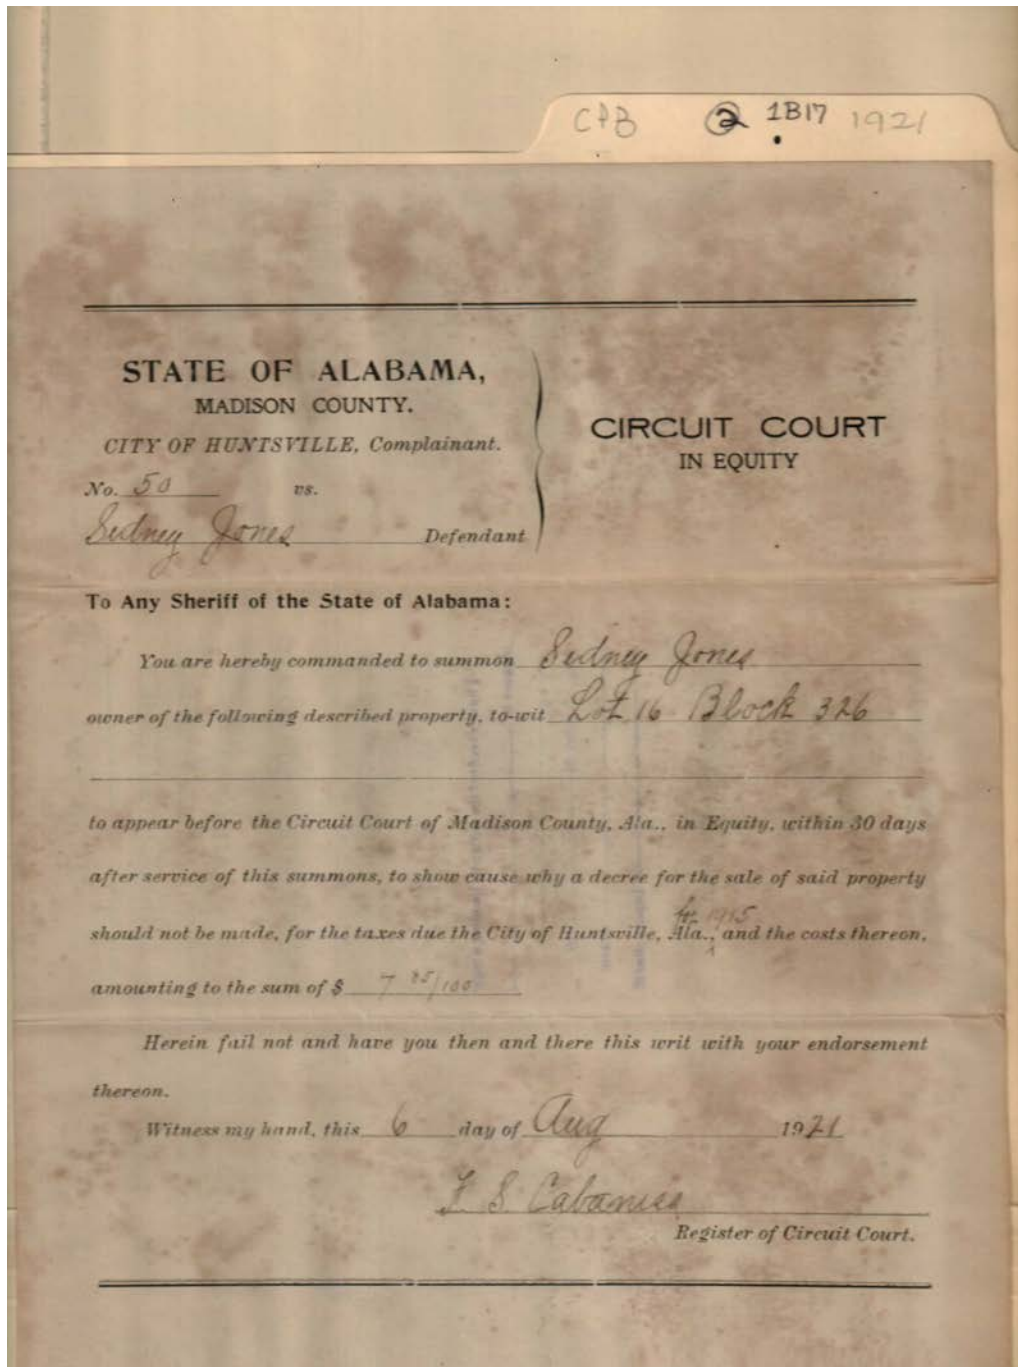 CPB ② 1B17 1921
STATE OF ALABAMA,
MADISON COUNTY.
CITY OF HUNTSVILLE, Complainant.
No. 50 vs.
Sidney Jones Defendant
CIRCUIT COURT
IN EQUITY
To Any Sheriff of the State of Alabama:
You are hereby commanded to summon Sidney Jones
owner of the following described property, to-wit Lot 16 Block 326
to appear before the Circuit Court of Madison County, Ala., in Equity, within 30 days
after service of this summons, to show cause why a decree for the sale of said property
for 1915
should not be made, for the taxes due the City of Huntsville, Ala., and the costs thereon,
amounting to the sum of $ 7 85/100
Herein fail not and have you then and there this writ with your endorsement
thereon.
Witness my hand, this 6 day of Aug 1921
F. S. Cabaniss
Register of Circuit Court.